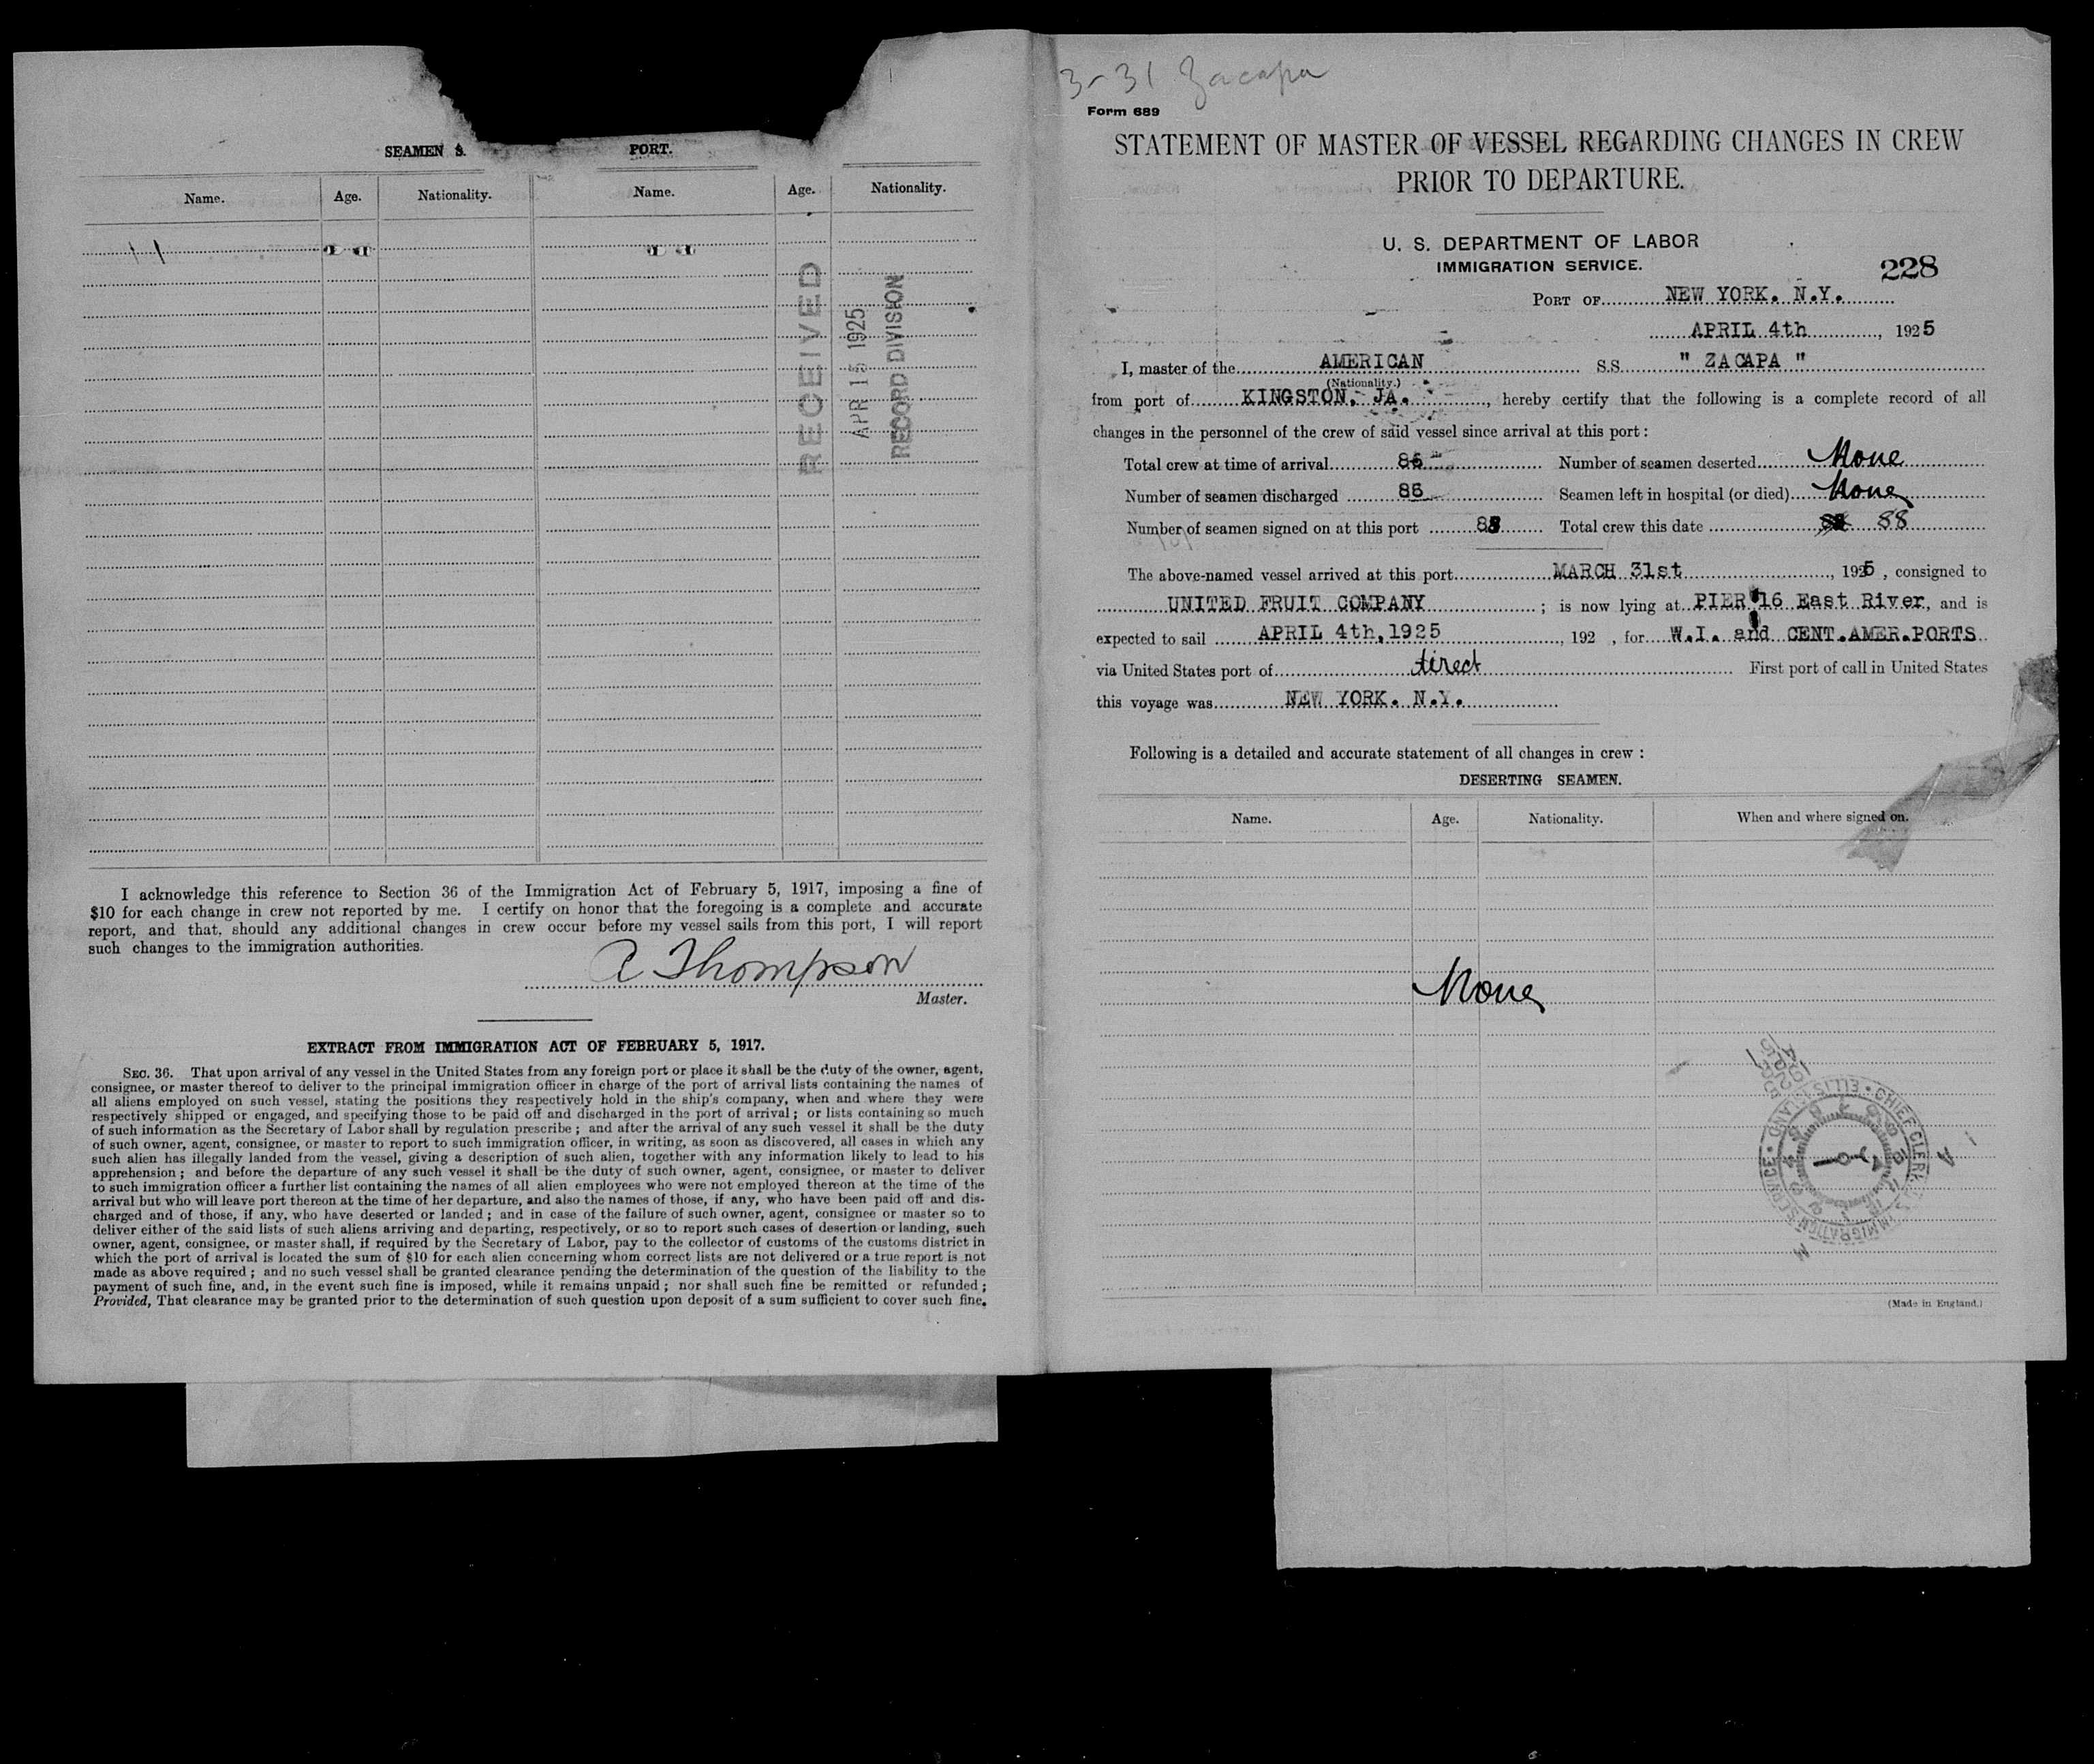 SEAMEN S. PORT.
Name. Age. Nationality. Name. Age. Nationality.
RECEIVED
APR 15 1925
RECORD DIVISION
I acknowledge this reference to Section 36 of the Immigration Act of February 5, 1917, imposing a fine of
$10 for each change in crew not reported by me. I certify on honor that the foregoing is a complete and accurate
report, and that, should any additional changes in crew occur before my vessel sails from this port, I will report
such changes to the immigration authorities.
A Thompson
Master.
EXTRACT FROM IMMIGRATION ACT OF FEBRUARY 5, 1917.
SEC. 36. That upon arrival of any vessel in the United States from any foreign port or place it shall be the duty of the owner, agent,
consignee, or master thereof to deliver to the principal immigration officer in charge of the port of arrival lists containing the names of
all aliens employed on such vessel, stating the positions they respectively hold in the ship's company, when and where they were
respectively shipped or engaged, and specifying those to be paid off and discharged in the port of arrival; or lists containing so much
of such information as the Secretary of Labor shall by regulation prescribe; and after the arrival of any such vessel it shall be the duty
of such owner, agent, consignee, or master to report to such immigration officer, in writing, as soon as discovered, all cases in which any
such alien has illegally landed from the vessel, giving a description of such alien, together with any information likely to lead to his
apprehension; and before the departure of any such vessel it shall be the duty of such owner, agent, consignee, or master to deliver
to such immigration officer a further list containing the names of all alien employees who were not employed thereon at the time of the
arrival but who will leave port thereon at the time of her departure, and also the names of those, if any, who have been paid off and dis-
charged and of those, if any, who have deserted or landed; and in case of the failure of such owner, agent, consignee or master so to
deliver either of the said lists of such aliens arriving and departing, respectively, or so to report such cases of desertion or landing, such
owner, agent, consignee, or master shall, if required by the Secretary of Labor, pay to the collector of customs of the customs district in
which the port of arrival is located the sum of $10 for each alien concerning whom correct lists are not delivered or a true report is not
made as above required; and no such vessel shall be granted clearance pending the determination of the question of the liability to the
payment of such fine, and, in the event such fine is imposed, while it remains unpaid; nor shall such fine be remitted or refunded;
Provided, That clearance may be granted prior to the determination of such question upon deposit of a sum sufficient to cover such fine.
3-31 Zacapa
Form 689
STATEMENT OF MASTER OF VESSEL REGARDING CHANGES IN CREW
PRIOR TO DEPARTURE.
U. S. DEPARTMENT OF LABOR
IMMIGRATION SERVICE.
228
PORT OF NEW YORK. N.Y.
APRIL 4th, 1925
I, master of the AMERICAN S.S. " ZACAPA "
(Nationality.)
from port of KINGSTON, JA., hereby certify that the following is a complete record of all
changes in the personnel of the crew of said vessel since arrival at this port:
Total crew at time of arrival 86 Number of seamen deserted None
Number of seamen discharged 86 Seamen left in hospital (or died) None
Number of seamen signed on at this port 88 Total crew this date 88
The above-named vessel arrived at this port MARCH 31st, 1925, consigned to
UNITED FRUIT COMPANY; is now lying at PIER 16 East River, and is
expected to sail APRIL 4th, 1925, 192 , for W.I. and CENT.AMER.PORTS
via United States port of direct First port of call in United States
this voyage was NEW YORK. N.Y.
Following is a detailed and accurate statement of all changes in crew:
DESERTING SEAMEN.
Name. Age. Nationality. When and where signed on.
None
CHIEF CLERK U.S. IMMIGRATION SERVICE ELLIS ISLAND
(Made in England.)